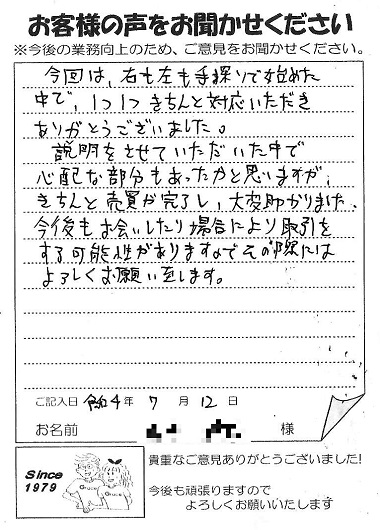 お客様の声をお聞かせください
※今後の業務向上のため、ご意見をお聞かせください。
今回は、右も左も手探りで始めた
中で、1つ1つきちんと対応いただき
ありがとうございました。
説明をさせていただいた中で
心配な部分もあったかと思いますが、
きちんと売買が完了し、大変助かりました、
今後もお会いしたり場合により取引を
する可能性がありますのでその際には
よろしくお願い致します。
ご記入日 令和4年 7月 12日
お名前 様
Since
1979
貴重なご意見ありがとうございました!
今後も頑張りますので
よろしくお願いいたします